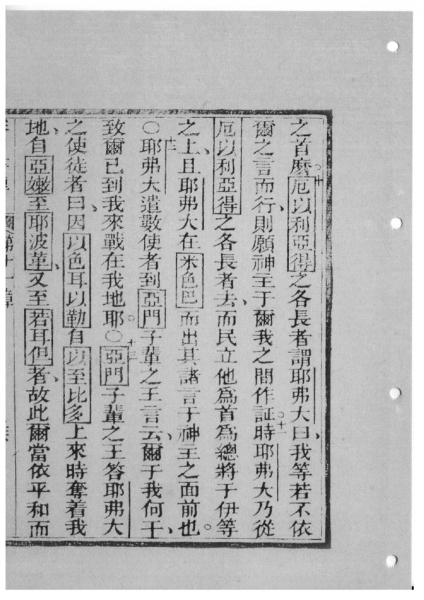 之首麽○厄以利亞得之各長者謂耶弗大曰我等若不依
爾之言而行則願神主于爾我之間作証時耶弗大乃從
厄以利亞得之各長者去而民立他為首為總將于伊等
之上且耶弗大在米色巴而出其諸言于神主之面前也
○耶弗大遣數使者到亞門子輩之王言云爾于我何干
致爾已到我來戰在我地耶○亞門子輩之王答耶弗大
之使徒者曰因以色耳以勒自以至比多上來時奪着我
地自亞嫩至耶波革又至若耳但者故此爾當依平和而